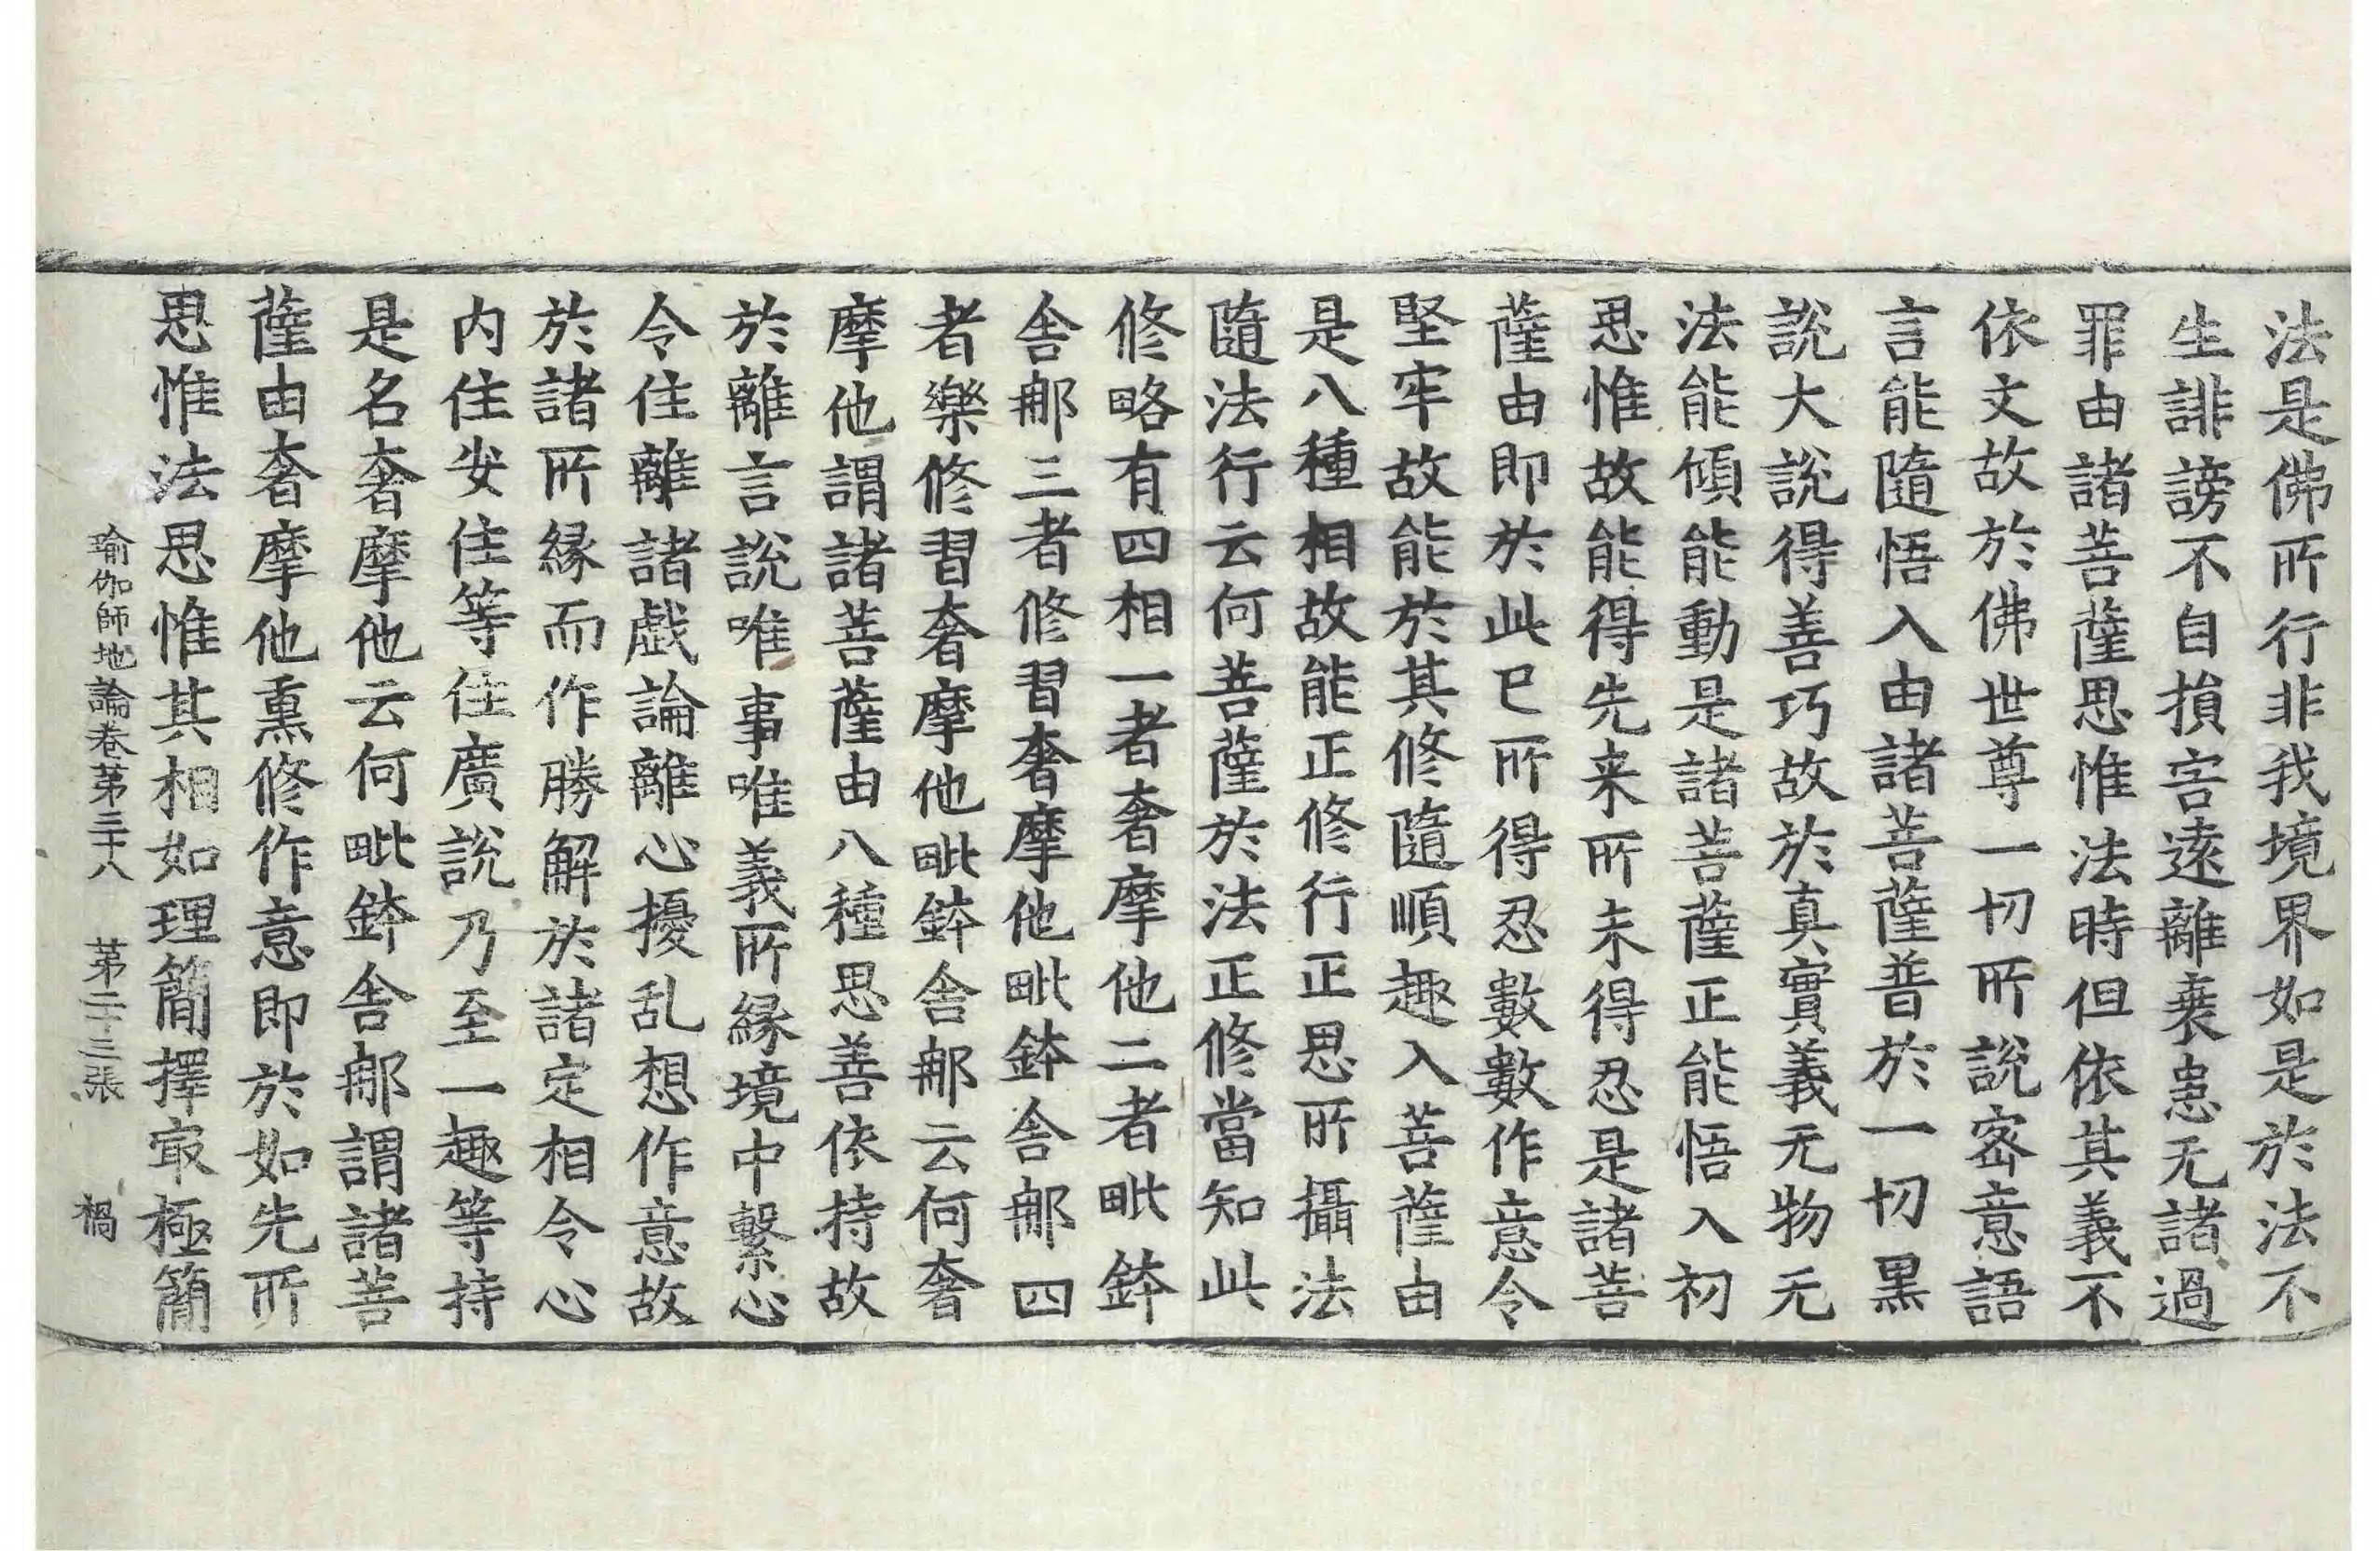 法是佛所行非我境界如是於法不
生誹謗不自損害遠離衰患无諸過
罪由諸菩薩思惟法時但依其義不
依文故於佛世尊一切所說密意語
言能隨悟入由諸菩薩普於一切黒
說大說得善巧故於真實義无物无
法能傾能動是諸菩薩正能悟入初
思惟故能得先来所未得忍是諸菩
薩由即於此已所得忍數數作意令
堅牢故能於其修隨順趣入菩薩由
是八種相故能正修行正思所攝法
隨法行云何菩薩於法正修當知此
修略有四相一者奢摩他二者毗鉢
舍那三者修習奢摩他毗鉢舍那四
者樂修習奢摩他毗鉢舍那云何奢
摩他謂諸菩薩由八種思善依持故
於離言說唯事唯義所緣境中繫心
令住離諸戲論離心擾乱想作意故
於諸所緣而作勝解於諸定相令心
内住安住等住廣說乃至一趣等持
是名奢摩他云何毗鉢舍那謂諸菩
薩由奢摩他熏修作意即於如先所
思惟法思惟其相如理簡擇㝡極簡
瑜伽師地論卷第三十八　第二十三張　禍